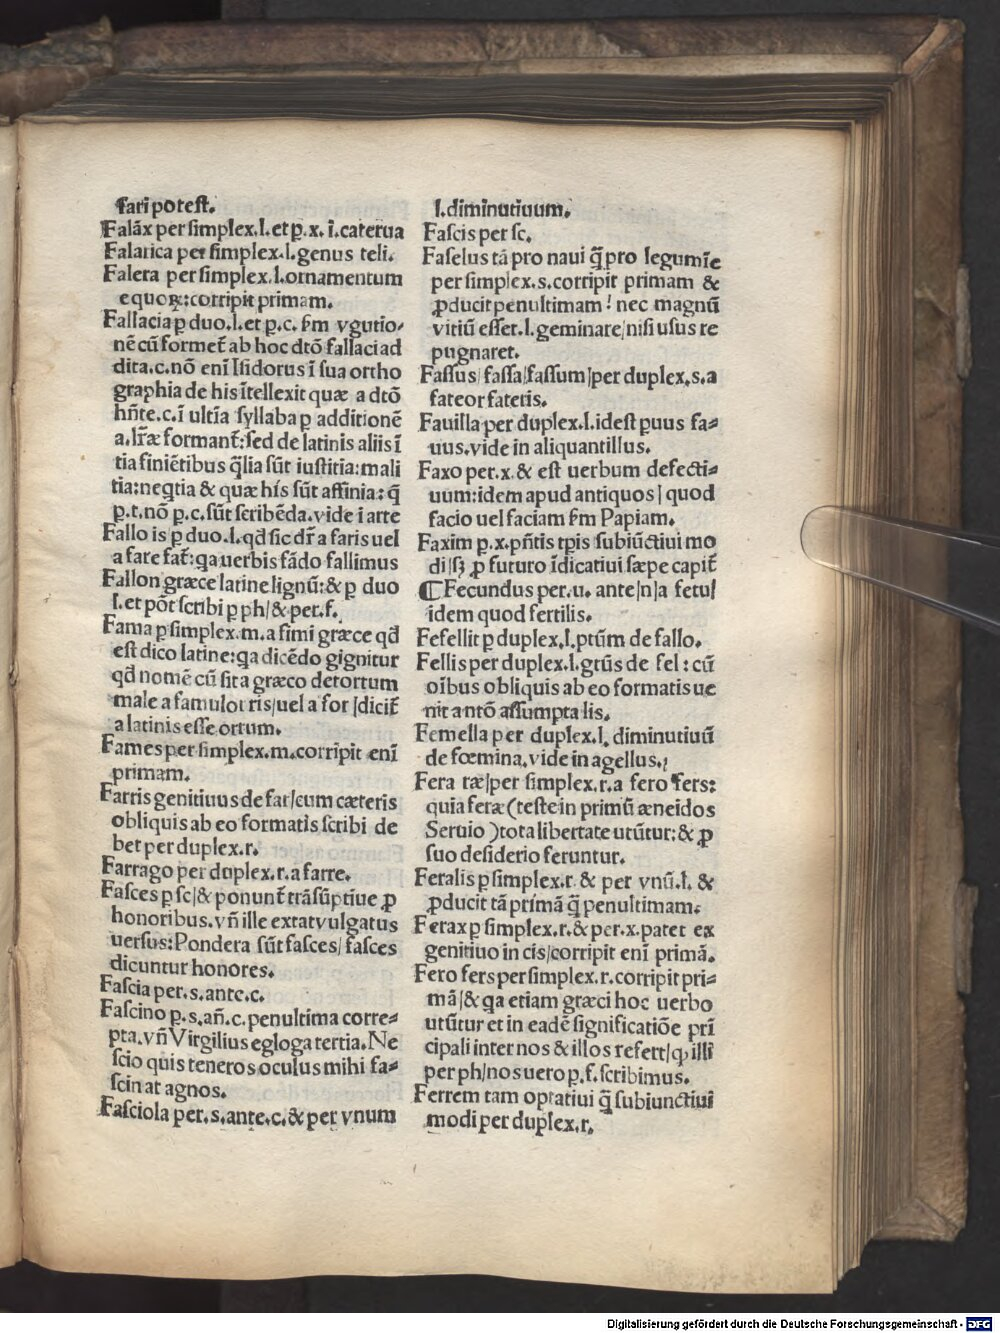 fari potest.
Falãx per simplex.l. et p̱.x. ĩ.caterua
Falarica per simplex.l.genus teli.
Falera per simplex.l.ornamentum
equoꝝ:corripit primam.
Fallacia p̱ duo.l.et p̱.c. ẜm vgutio-
nẽ cũ formet̃ ab hoc dtõ fallaci ad
dita.c.nõ enĩ Isidorus ĩ sua ortho
graphia de his ĩtellexit quæ a dtõ
hñte.c.ĩ ultĩa syllaba p̱ additionẽ
a.lr̃æ formant̃:sed de latinis aliis ĩ
tia finiẽtibus q̃lia sũt iustitia:mali
tia:neq̃tia & quæ his sũt affinia: q̃
p̱.t.nõ p̱.c.sũt scribẽda.vide i arte
Fallo is p̱ duo.l.qđ sic dr̃ a faris uel
a fare fat̃:qa uerbis fãdo fallimus
Fallon græce latine lignũ:& p̱ duo
l.et põt scribi p̱ ph/& per.f.
Fama p̱ simplex.m.a fimi græce qđ
est dico latine:qa dicẽdo gignitur
qđ nomẽ cũ sit a græco detortum
male a famulor ris/uel a for /dicit̃
a latinis esse ortum.
Fames per simplex.m.corripit enĩ
primam.
Farris genitiuus de far/cum cæteris
obliquis ab eo formatis scribi de
bet per duplex.r.
Farrago per duplex.r.a farre.
Fasces p̱ sc/& ponunt̃ trãsũptiue ꝓ
honoribus.vñ ille extat vulgatus
uersus:Pondera sũt fasces/ fasces
dicuntur honores.
Fascia per.s.ante.c.
Fascino p̱.s.añ.c.penultima corre=
pta.vñ Virgilius egloga tertia.Ne
scio quis teneros oculus mihi fa=
scinat agnos.
Fasciola per.s.ante.c.& per vnum
l.diminutiuum.
Fascis per sc.
Faselus tã pro naui q̃ pro legumĩe
per simplex.s.corripit primam &
ꝓducit penultimam: nec magnũ
vitiũ esset.l.geminare/nisi usus re
pugnaret.
Fassus/ fassa/fassum/per duplex.s.a
fateor fateris.
Fauilla per duplex.l.idest puus fa=
uus.vide in aliquantillus.
Faxo per.x.& est uerbum defecti=
uum:idem apud antiquos/ quod
facio uel faciam ẜm Papiam.
Faxim p̱.x.pñtis tp̱is subiũctiui mo
di/sꝫ ꝓ futuro ĩdicatiui sæpe capit̃
¶Fecundus per.u. ante/n/a fetu/
idem quod fertilis.
Fefellit p̱ duplex.l.ptũm de fallo.
Fellis per duplex.l.gtũs de fel: cũ
oĩbus obliquis ab eo formatis ue
nit a ntõ assumpta lis.
Femella per duplex.l. diminutiuũ
de fœmina.vide in agellus.
Fera ræ/per simplex.r.a fero fers:
quia feræ (teste in primũ æneidos
Seruio) tota libertate utũtur:& ꝓ
suo desiderio feruntur.
Feralis p̱ simplex.r. & per vnũ.l. &
ꝓducit tã primã q̃ penultimam.
Ferax p̱ simplex.r.& per.x.patet ex
genitiuo in cis/corripit enĩ primã.
Fero fers per simplex.r.corripit pri=
mã/& qa etiam græci hoc uerbo
utũtur et in eadẽ significatiõe prĩ
cipali inter nos & illos refert/ꝙ illi
per ph/nos uero p̱.f.scribimus.
Ferrem tam optatiui q̃ subiunctiui
modi per duplex.r.
Digitalisierung gefördert durch die Deutsche Forschungsgemeinschaft - DFG